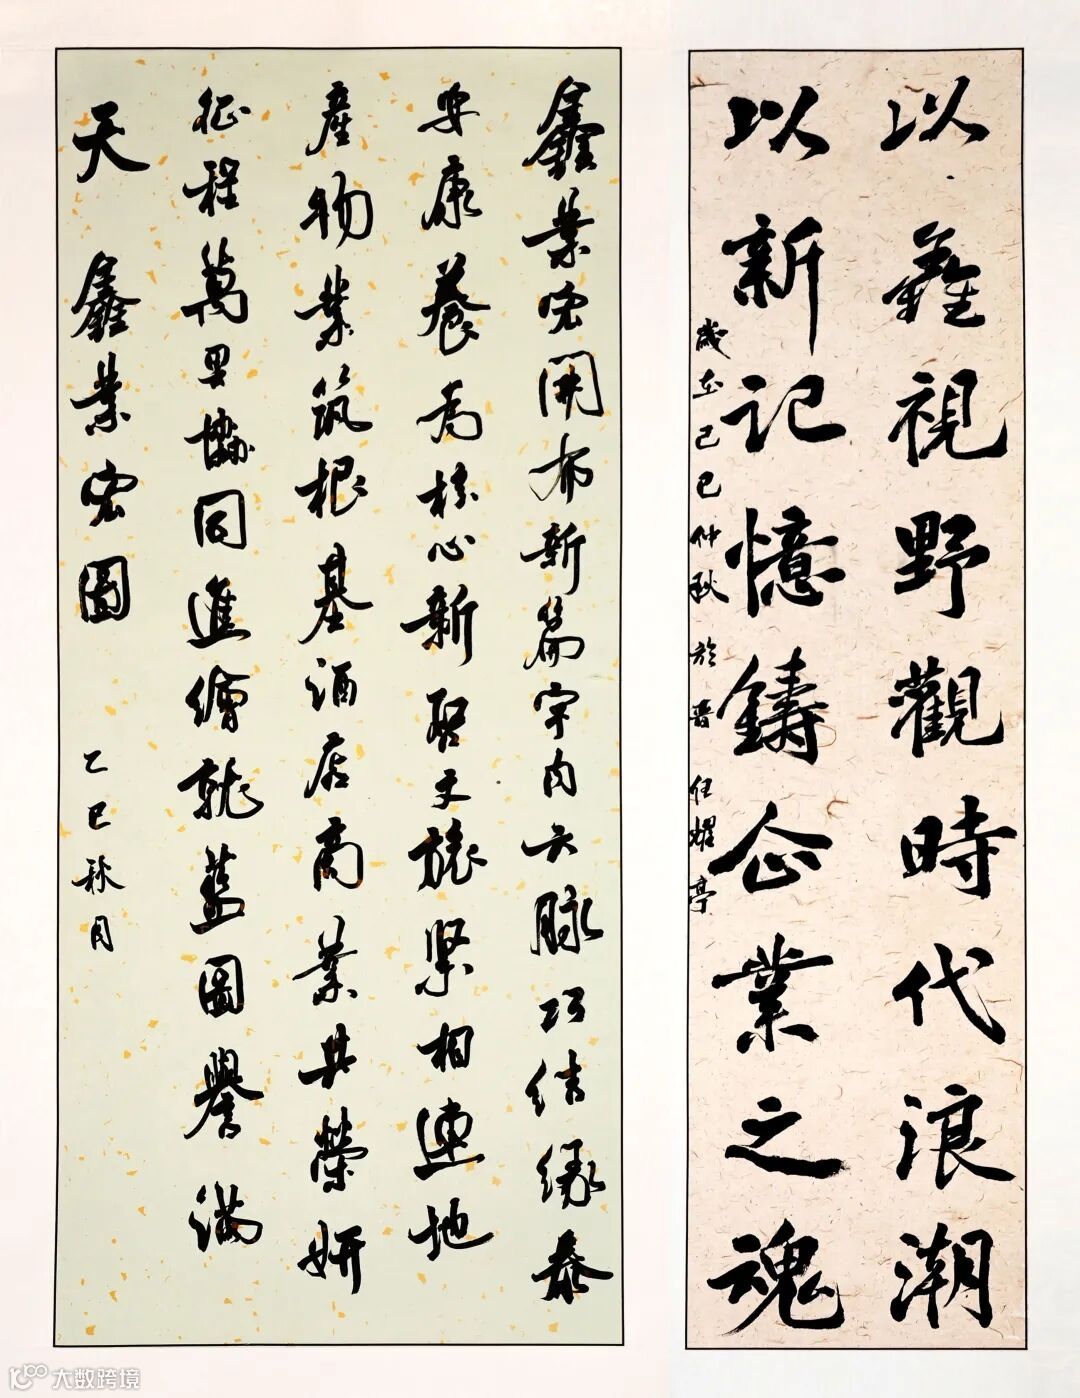 以鑫視野觀時代浪潮
以新記憶鑄企業之魂
歲在己巳仲秋於晋任耀亭
鑫業宏開布新篇宇内六脉巧结缘泰
安康養為核心新聚文旅緊相連地
產物業筑根基酒店商業共榮妍
征程萬里協同進繪就藍圖譽滿
天 鑫業宏圖 乙巳秋月
大数跨境